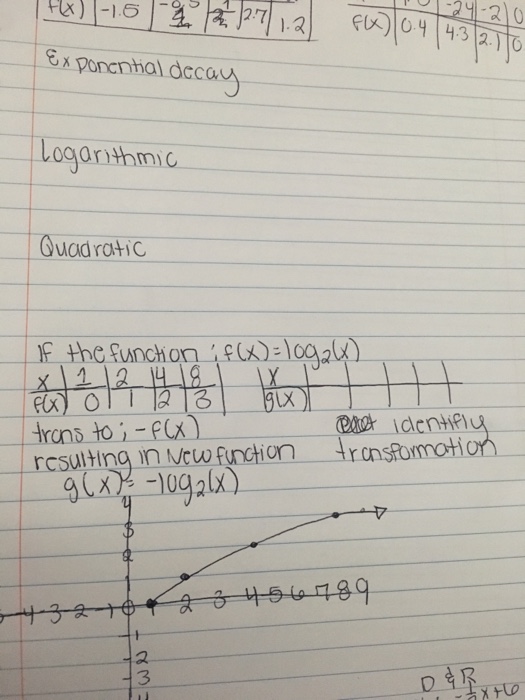 f(x) | -1.5 | | | 2.7 | 1.2
-24 | -2 | 0
f(x) | 0.4 | 4.3 | 2.1 | 0
Exponential decay
Logarithmic
Quadratic
If the function : f(x)=log₂(x)
x | 1 | 2 | 4 | 8 | x
f(x) | 0 | 1 | 2 | 3 | g(x)
trans to ; -f(x) identifiy
resulting in New function transformation
g(x)= -log₂(x)
y
3
2
4 -3 -2 -1 0 1 2 3 4 5 6 7 8 9
1
2
3
D & R
x+6